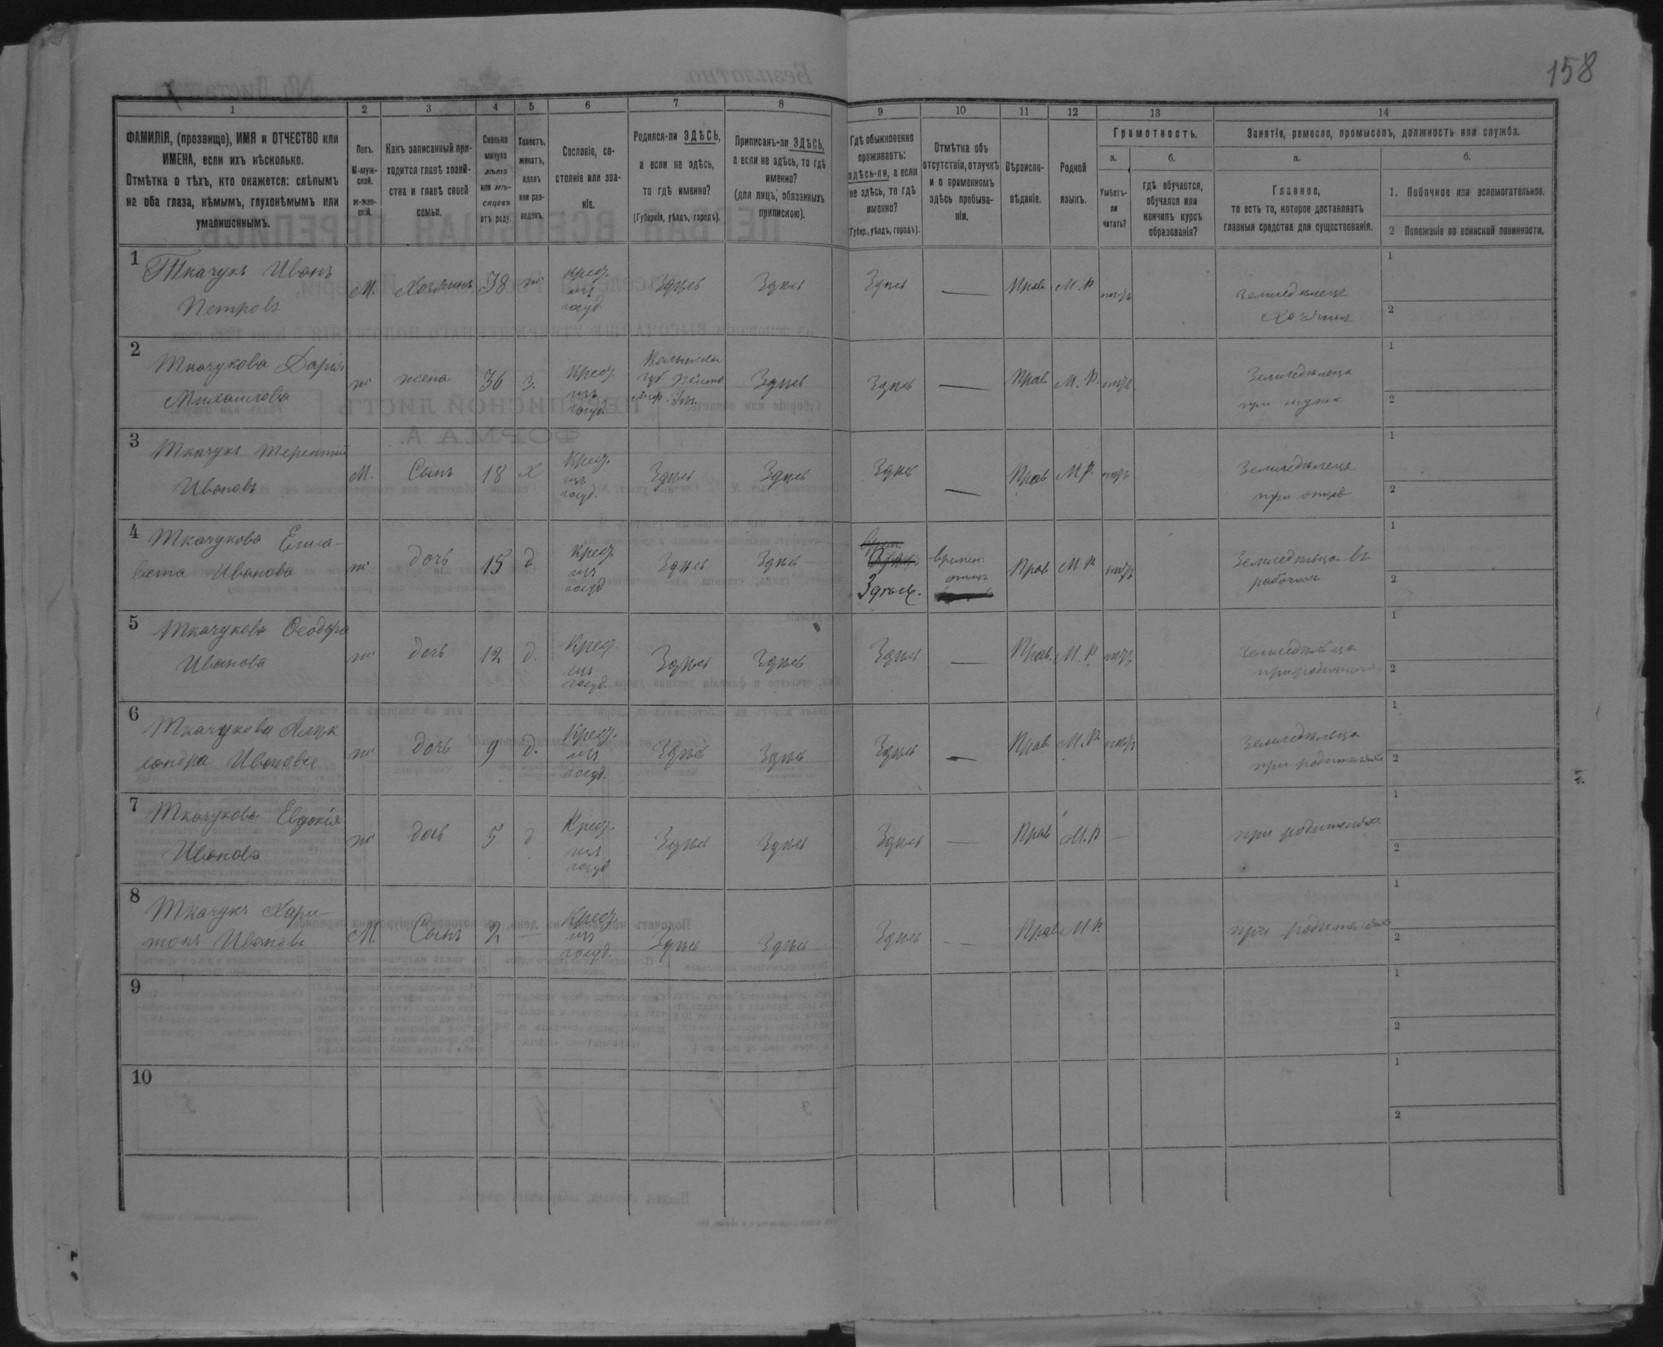 158
1 2 3 4 5 6 7 8 9 10 11 12 13 14
ФАМИЛІЯ, (прозвище), ИМЯ и ОТЧЕСТВО или
ИМЕНА, если ихъ нѣсколько.
Отмѣтка о тѣхъ, кто окажется: слѣпымъ
на оба глаза, нѣмымъ, глухонѣмымъ или
умалишеннымъ.
Полъ.
М-муж-
ской.
Ж-жен-
скій.
Какъ записанный при-
ходится главѣ хозяй-
ства и главѣ своей
семьи.
Сколько
минуло
лѣтъ
или мѣ-
сяцевъ
отъ роду.
Холостъ,
женатъ,
вдовъ
или раз-
веденъ.
Сословіе, со-
стояніе или зва-
ніе.
Родился-ли ЗДѢСЬ,
а если не здѣсь,
то гдѣ именно?
(Губернія, уѣздъ, городъ).
Приписанъ-ли ЗДѢСЬ,
а если не здѣсь, то гдѣ
именно?
(для лицъ, обязанныхъ
припискою).
Гдѣ обыкновенно
проживаетъ:
здѣсь-ли, а если
не здѣсь, то гдѣ
именно?
(Губер., уѣздъ, городъ).
Отмѣтка объ
отсутствіи, отлучкѣ
и о временномъ
здѣсь пребыва-
ніи.
Вѣроиспо-
вѣданіе.
Родной
языкъ.
Грамотность.
а.
Умѣетъ-
ли
читать?
б.
гдѣ обучается,
обучался или
кончилъ курсъ
образованія?
Занятіе, ремесло, промыселъ, должность или служба.
а.
Главное,
то есть то, которое доставляетъ
главныя средства для существованія.
б.
1. Побочное или вспомогательное.
2 Положеніе по воинской повинности.
1
Ткачукъ Иванъ
Петровъ
М. Хозяинъ 38 ж
крест.
изъ
госуд
Здѣсь Здѣсь Здѣсь — Прав. М. Р нѣтъ
Земледѣлецъ
Хозяинъ
1
2
2
Ткачукова Дарія
Михаилова
ж жена 36 з.
крест
изъ
госуд
Здѣсь Здѣсь — Прав М. Р. нѣтъ
Земледѣлеца
при мужѣ
1
2
3
Ткачукъ Терентій
Ивановъ
М. Сынъ 18 х
крест.
изъ
госуд.
Здѣсь Здѣсь Здѣсь — Прав М Р. нѣтъ
Земледѣлецъ
при отцѣ
1
2
4
Ткачукова Елиса-
вета Иванова
ж дочь 15 д
крест
изъ
госуд
Здѣсь Здѣсь
Здѣсь.
Прав М Р нѣтъ
Земледѣлца въ
работахъ
1
2
5
Ткачукова Ѳеодора
Иванова
ж дочь 12 д.
крест.
изъ
госуд.
Здѣсь Здѣсь Здѣсь — Прав. М. Р. нѣтъ
Земледѣлца
1
2
6
Ткачукова Алек
сандра Иванова
ж дочь 9 д.
крест.
изъ
госуд.
Здѣсь Здѣсь Здѣсь — Прав М. Р нѣтъ
Земледѣлца
при родителяхъ
1
2
7
Ткачукова Евдокія
Иванова
ж дочь 5 д
крест.
изъ
госуд
Здѣсь Здѣсь Здѣсь — Прав М. Р —
при родителяхъ
1
2
8
Ткачукъ Хари-
тонъ Ивановъ
М. Сынъ 2 —
крест.
изъ
госуд.
Здѣсь Здѣсь Здѣсь — Прав М Р.
при родителяхъ
1
2
9
1
2
10
1
2